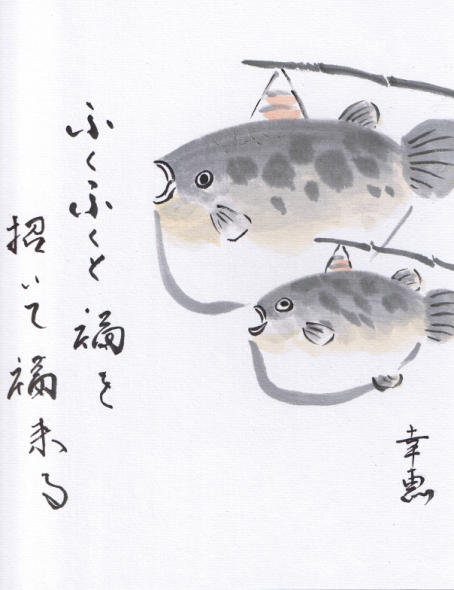 ふくふくと福を
招いて福来る
幸恵